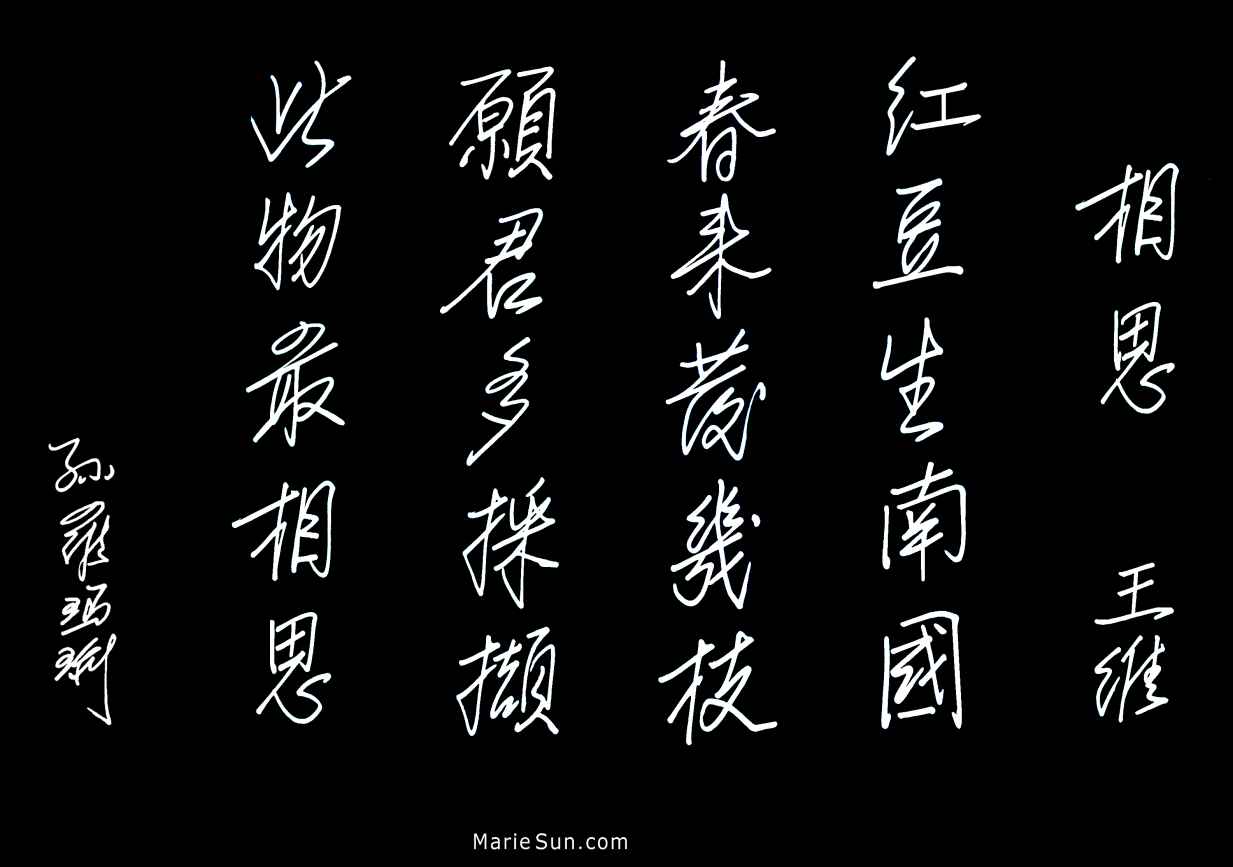 相思 王維
紅豆生南國
春来發幾枝
願君多採擷
此物最相思
孫羅瑪琍
MarieSun.com